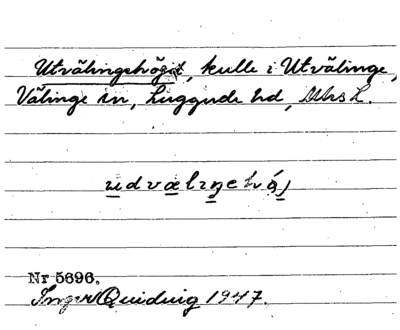 Utvälingehögst, kulle i Utvälinge,
Välinge sn, Luggude hd, Mhs L.
udvæliŋehǫ́j
Nr 5696.
Inger Quiding 1947.